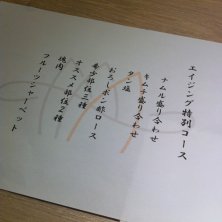 エイジング特別コース
ナムル盛り合わせ
キムチ盛り合わせ
タン塩
おろしポン酢ロース
希少部位三種
オススメ部位2種
塊肉
フルーツシャーベット